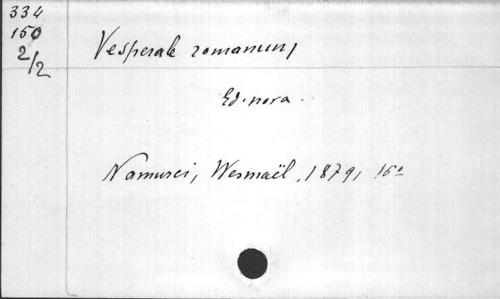 334
150
2/2
Vesperale romanum,
Ed. nova.
Namurci, Wesmaël, 1879, 16º